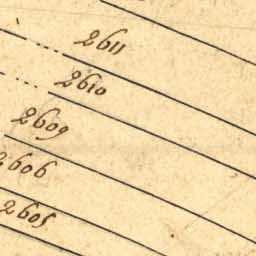 2611
2610
2609
2606
2605